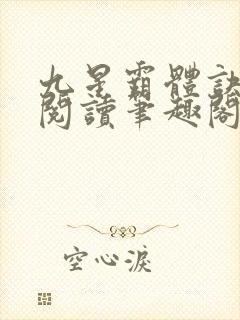 九星霸體訣
閱讀筆趣閣
空心淚